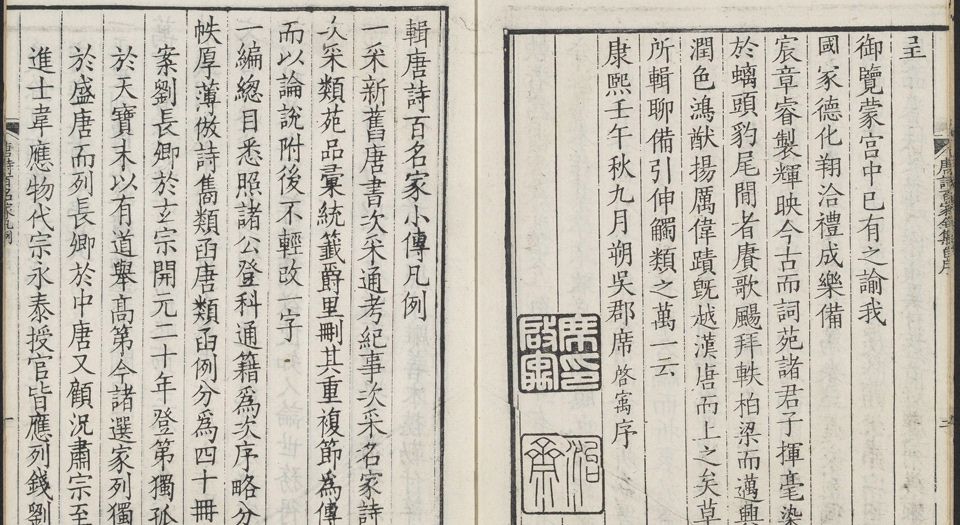 呈
御覽蒙宫中已有之諭我
國家德化翔洽禮成樂備
宸章睿製輝映今古而詞苑諸君子揮毫染
於螭頭豹尾閒者賡歌颺拜軼柏梁而邁興
潤色鴻猷揚厲偉蹟旣越漢唐而上之矣草
所輯聊備引伸觸類之萬一云
康熙壬午秋九月朔吳郡席啓㝢序
席啓㝢印
治齋
輯唐詩百名家小傳凡例
一采新舊唐書次采通考紀事次采名家詩
次采類苑品彙統籖爵里刪其重複節爲傳
而以論說附後不輕改一字
一編總目悉照諸公登科通籍爲次序略分
帙厚薄倣詩雋類函唐類函例分爲四十冊
案劉長卿於玄宗開元二十年登第獨孤
於天寶末以有道舉高第今諸選家列獨
於盛唐而列長卿於中唐又顧況肅宗至
進士韋應物代宗永泰授官皆應列錢劉
唐詩百名家凡例
一